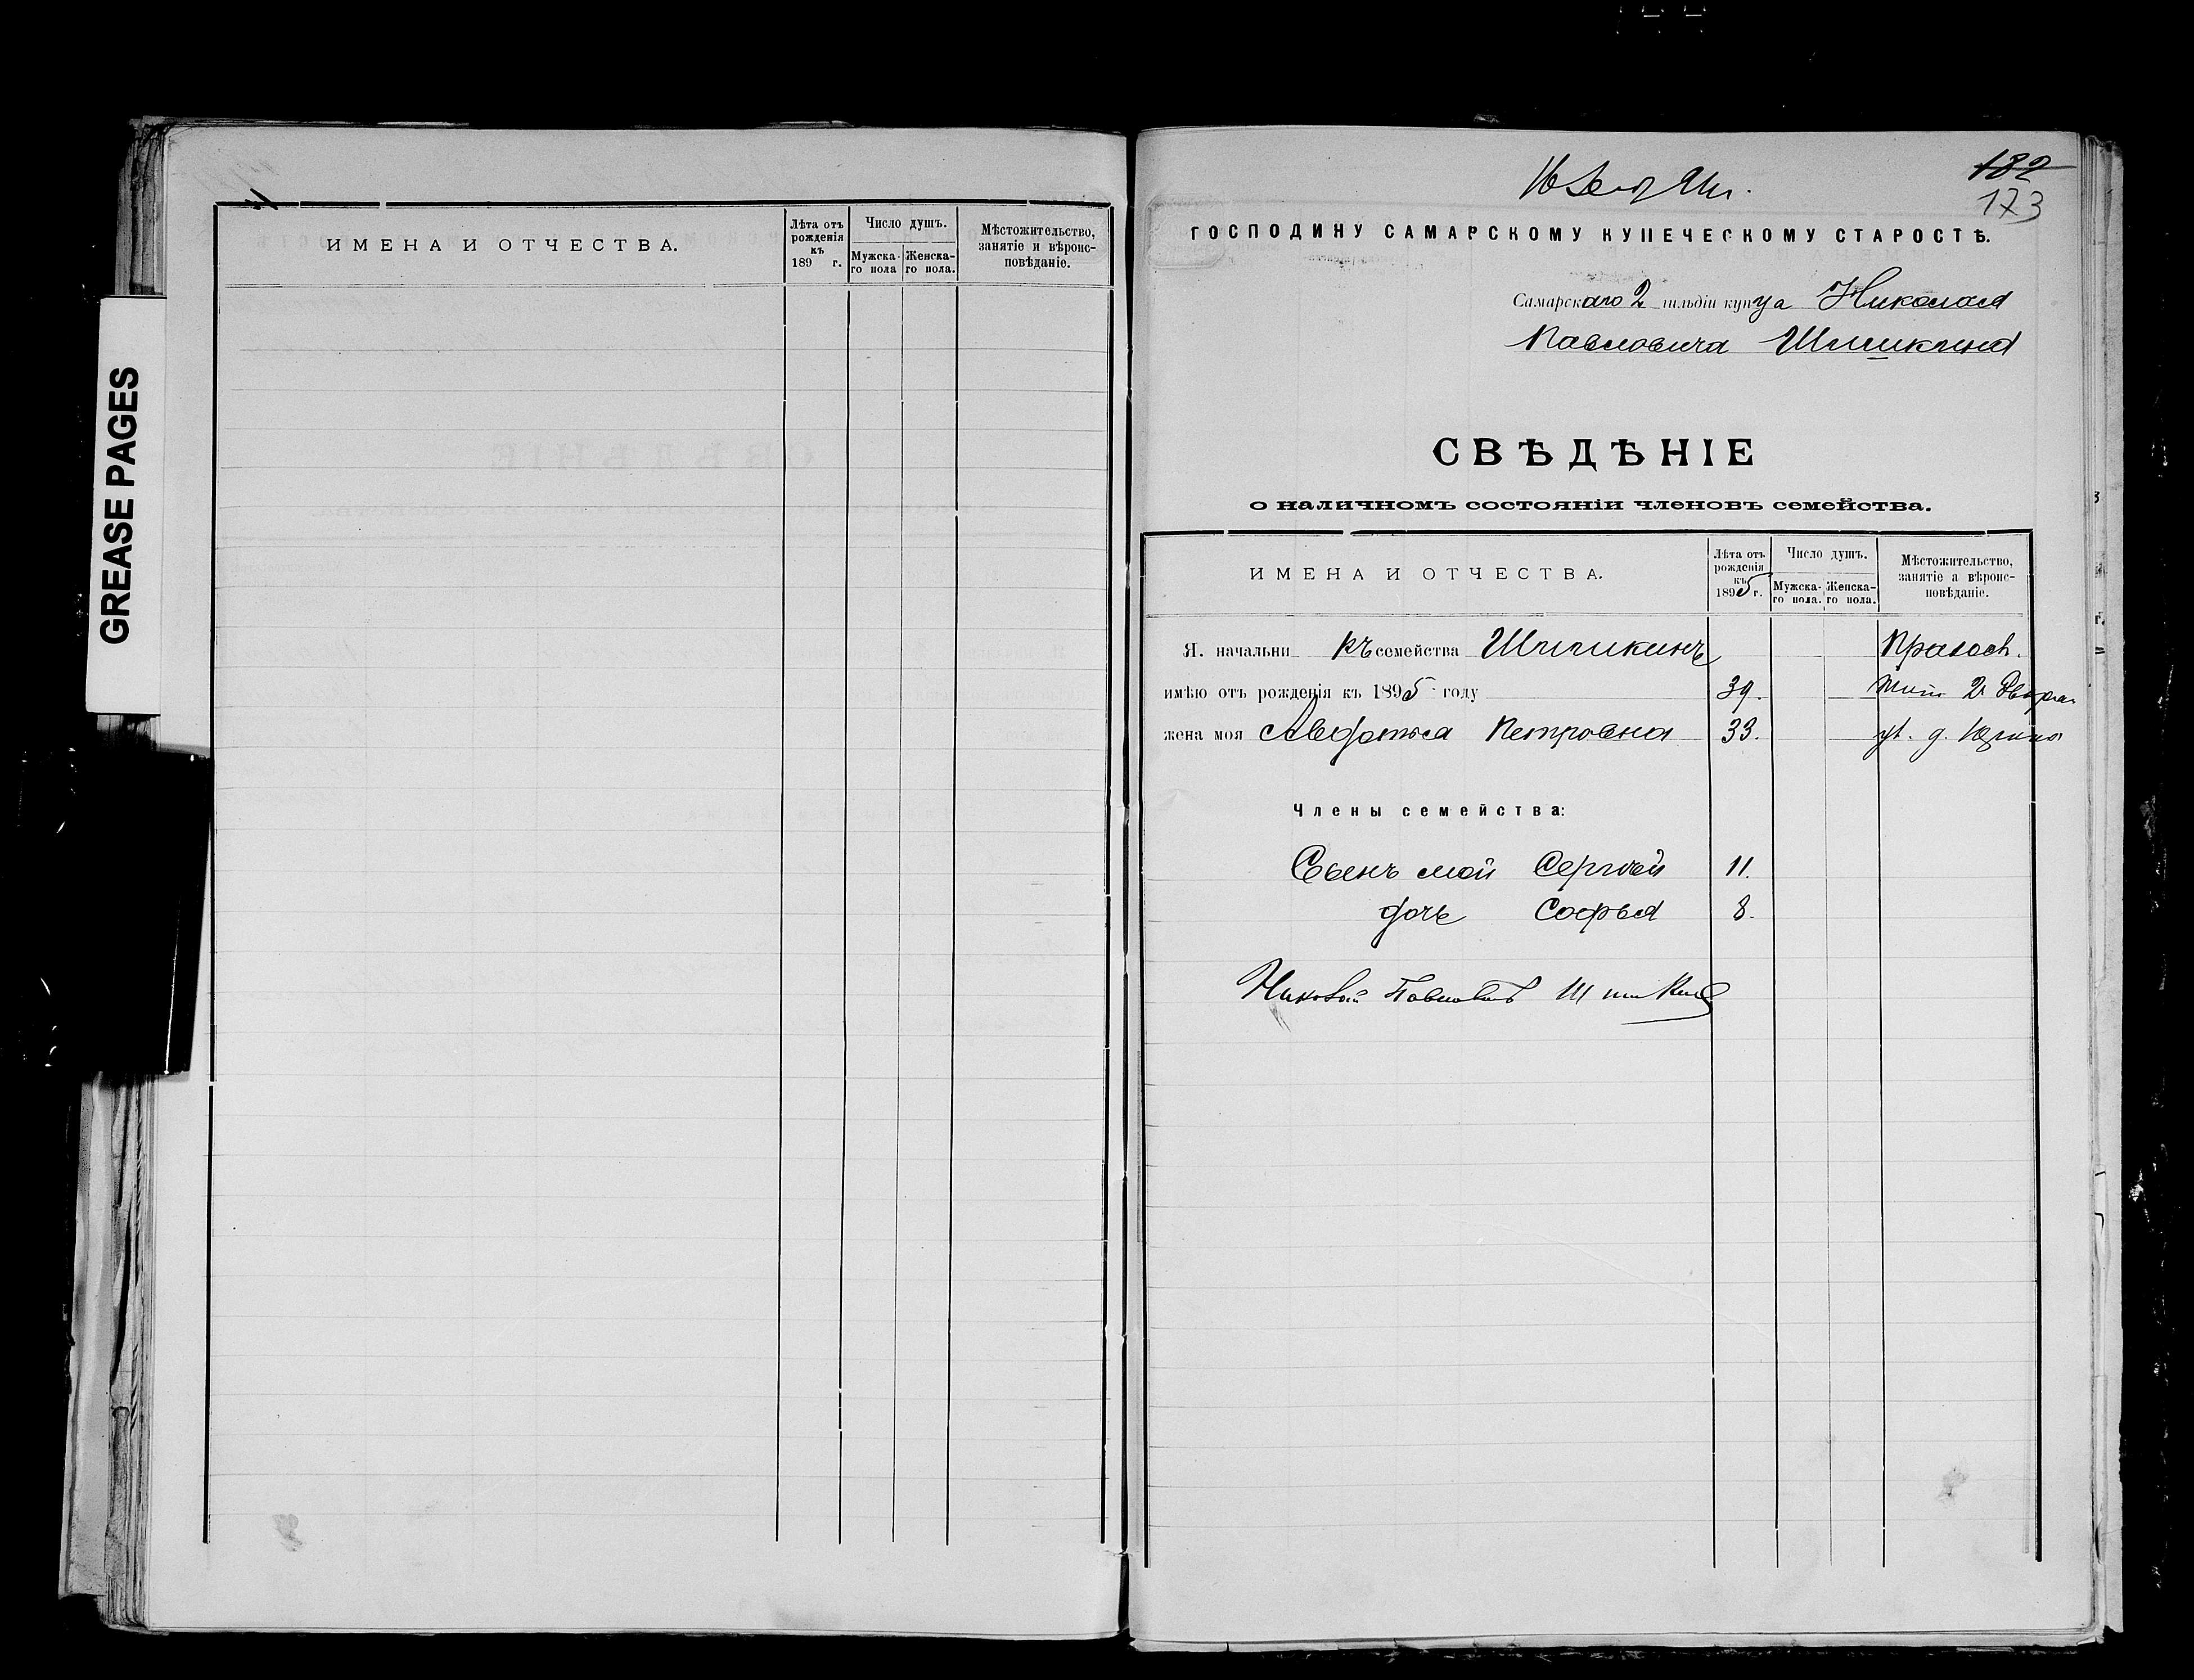 GREASE PAGES
ИМЕНА И ОТЧЕСТВА.
Лѣта отъ рожденія къ 189 г.
Число душъ.
Мужска-го пола
Женска-го пола.
Мѣстожительство, занятіе и вѣроис-повѣданіе.
182
173
ГОСПОДИНУ САМАРСКОМУ КУПЕЧЕСКОМУ СТАРОСТѢ.
Самарскаго 2 гильдіи купца Николая
Павловича Шишкина
СВѢДѢНІЕ
о наличномъ состояніи членовъ семейства.
ИМЕНА И ОТЧЕСТВА.
Лѣта отъ рожденія къ 1895 г.
Число душъ.
Мужска-го пола.
Женска-го пола.
Мѣстожительство, занятіе а вѣроис-повѣданіе.
Я. начальни къ семейства Шишкинъ Правосл.
имѣю отъ рожденія къ 1895 году 39.
жена моя Авдотья Петровна 33.
Члены семейства:
Сынъ мой Сергѣй 11.
дочь Софья 8.
Николай Павловичъ Шишкинъ